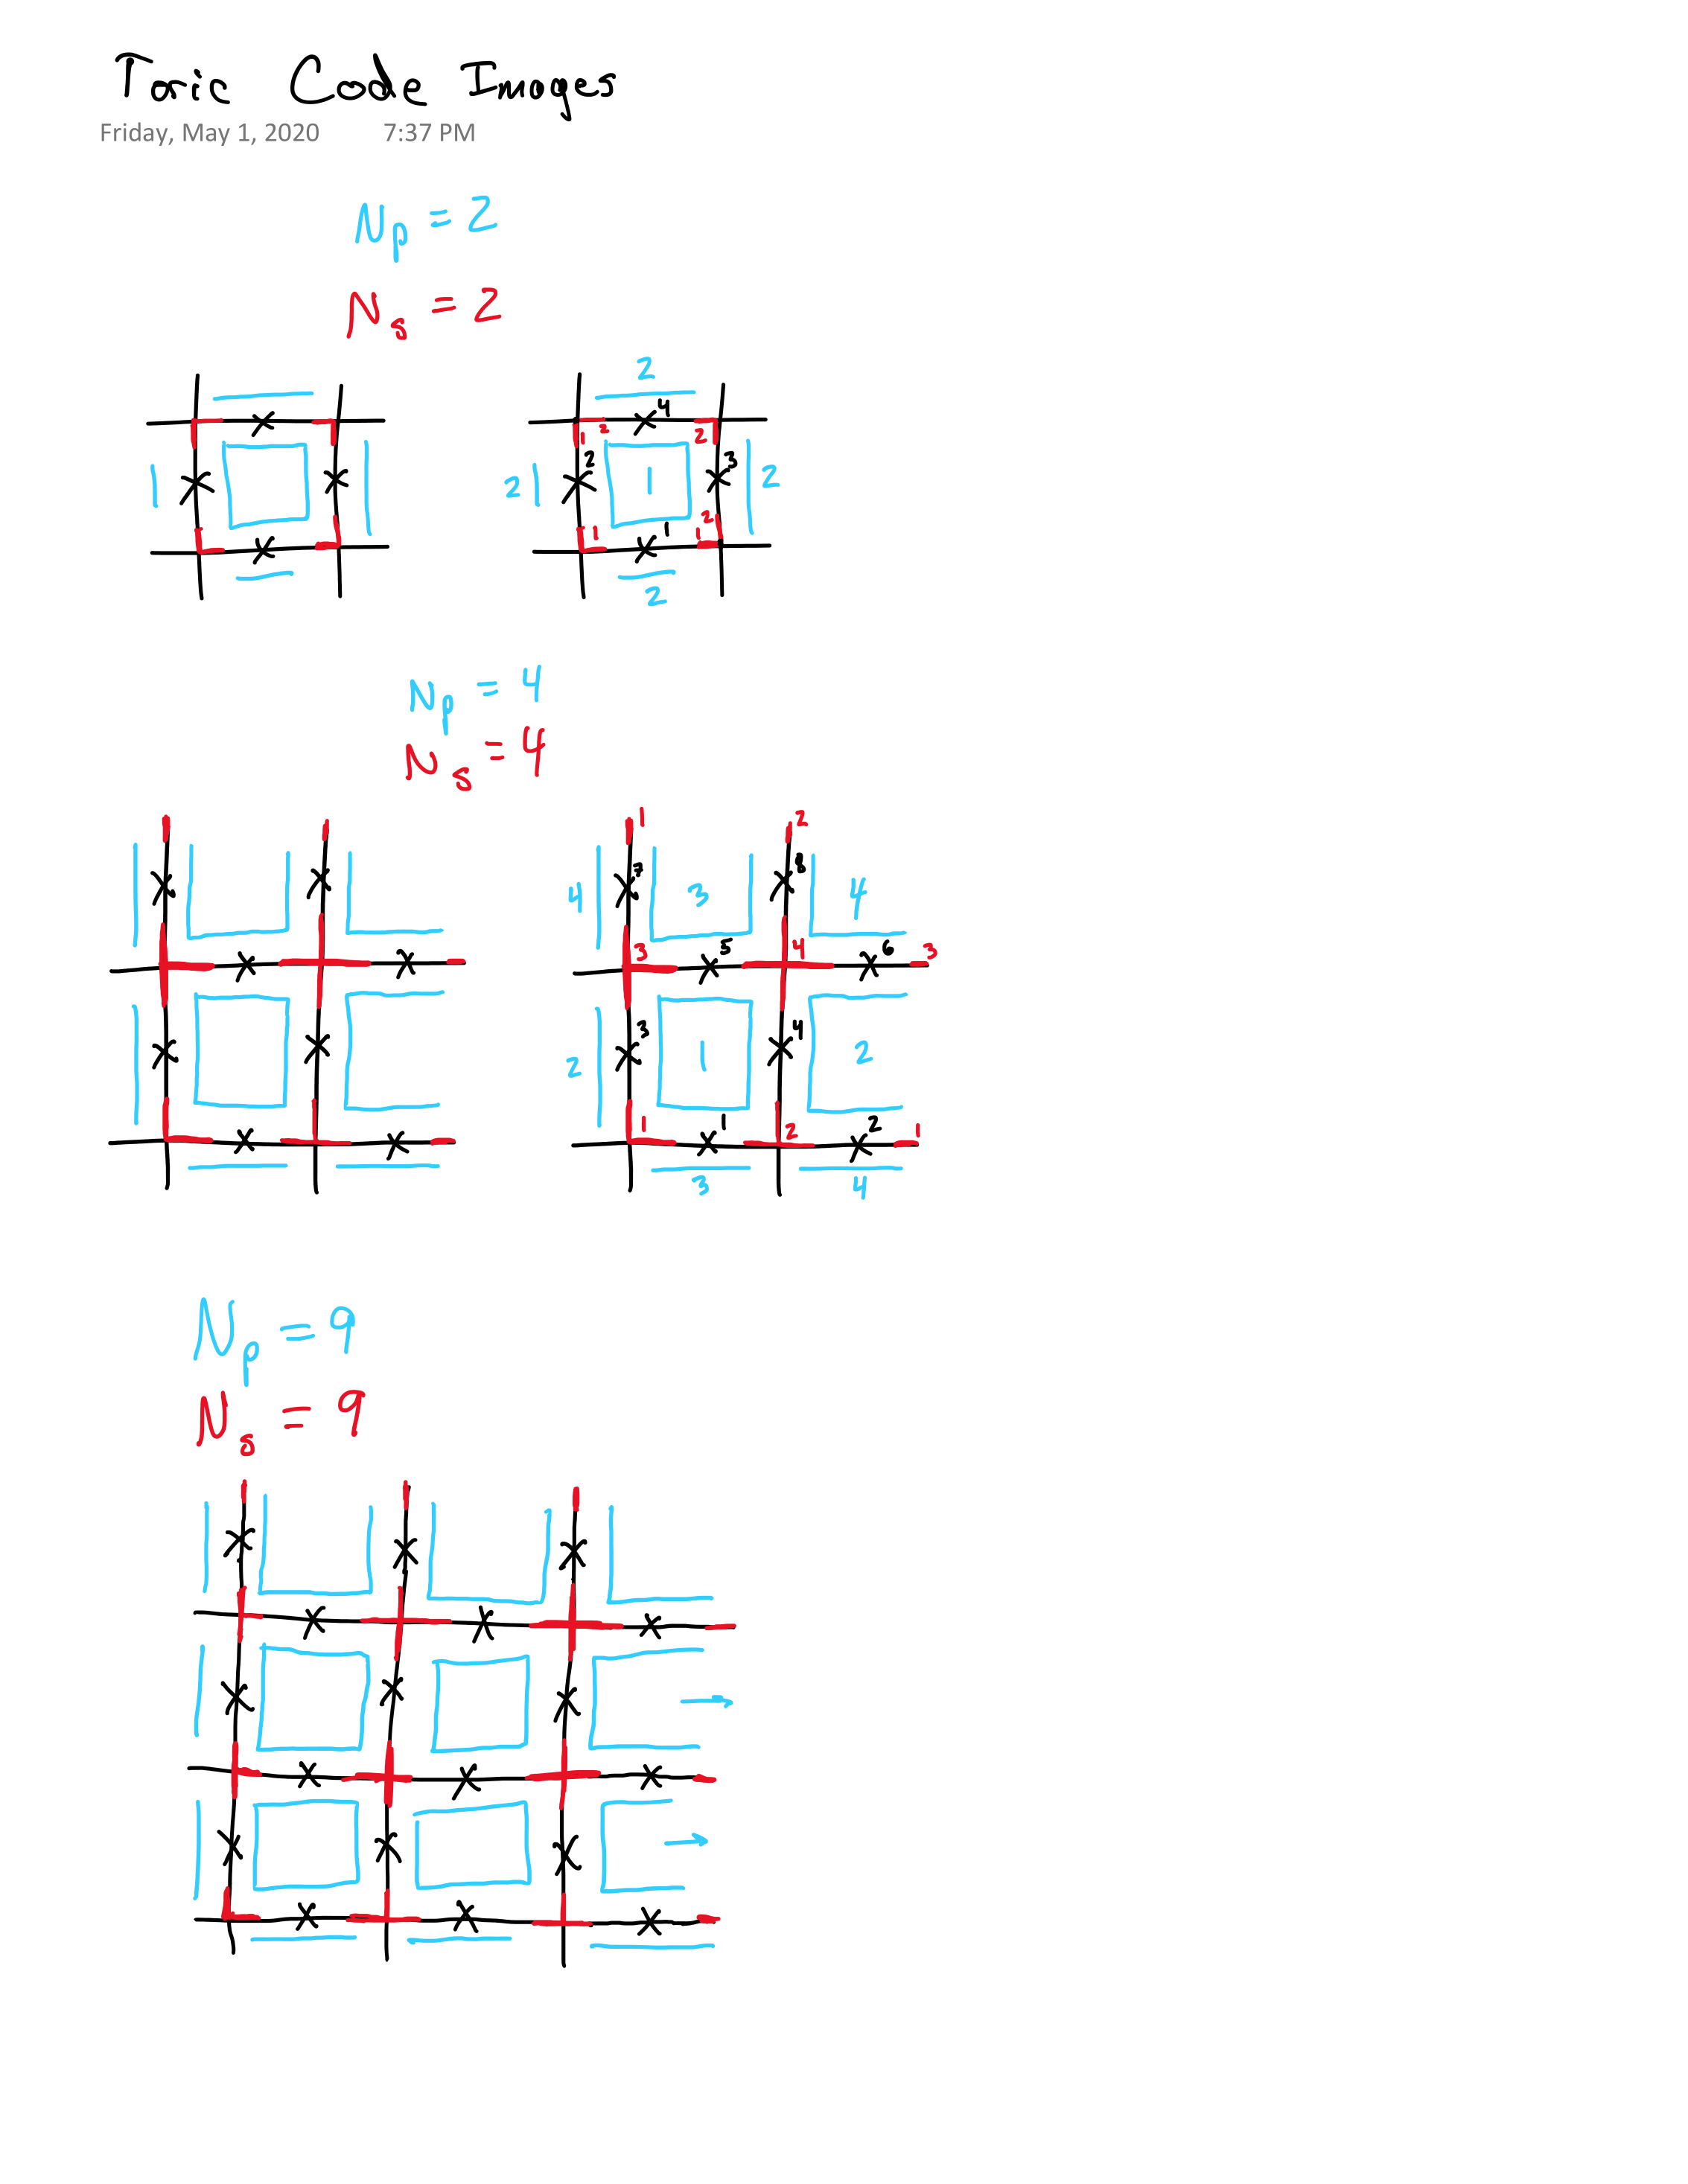 Toric Code Images
Friday, May 1, 2020 7:37 PM
Np = 2
Ns = 2
2
4
1 2 2
2 3
2 1 2
2
1 1 1
2
Np = 4
Ns = 4
1 2
7 8
4 3 4
5 6
3 4 3
3 4
2 1 2
1 2
1 2 1
3 4
Np = 9
Ns = 9